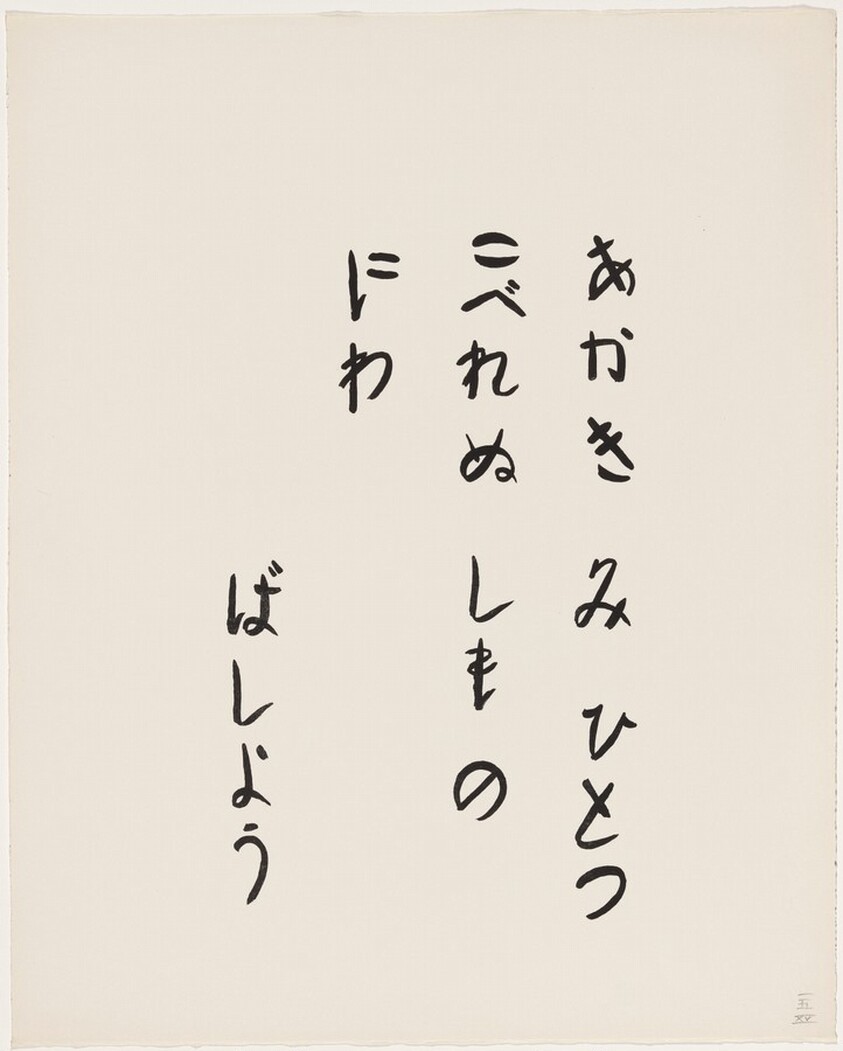 あかき み ひとつ
こべれぬ しも の
にわ
ばしよう
一五
XV